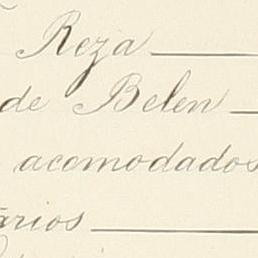 Reza
de Belen
acomodados
arios